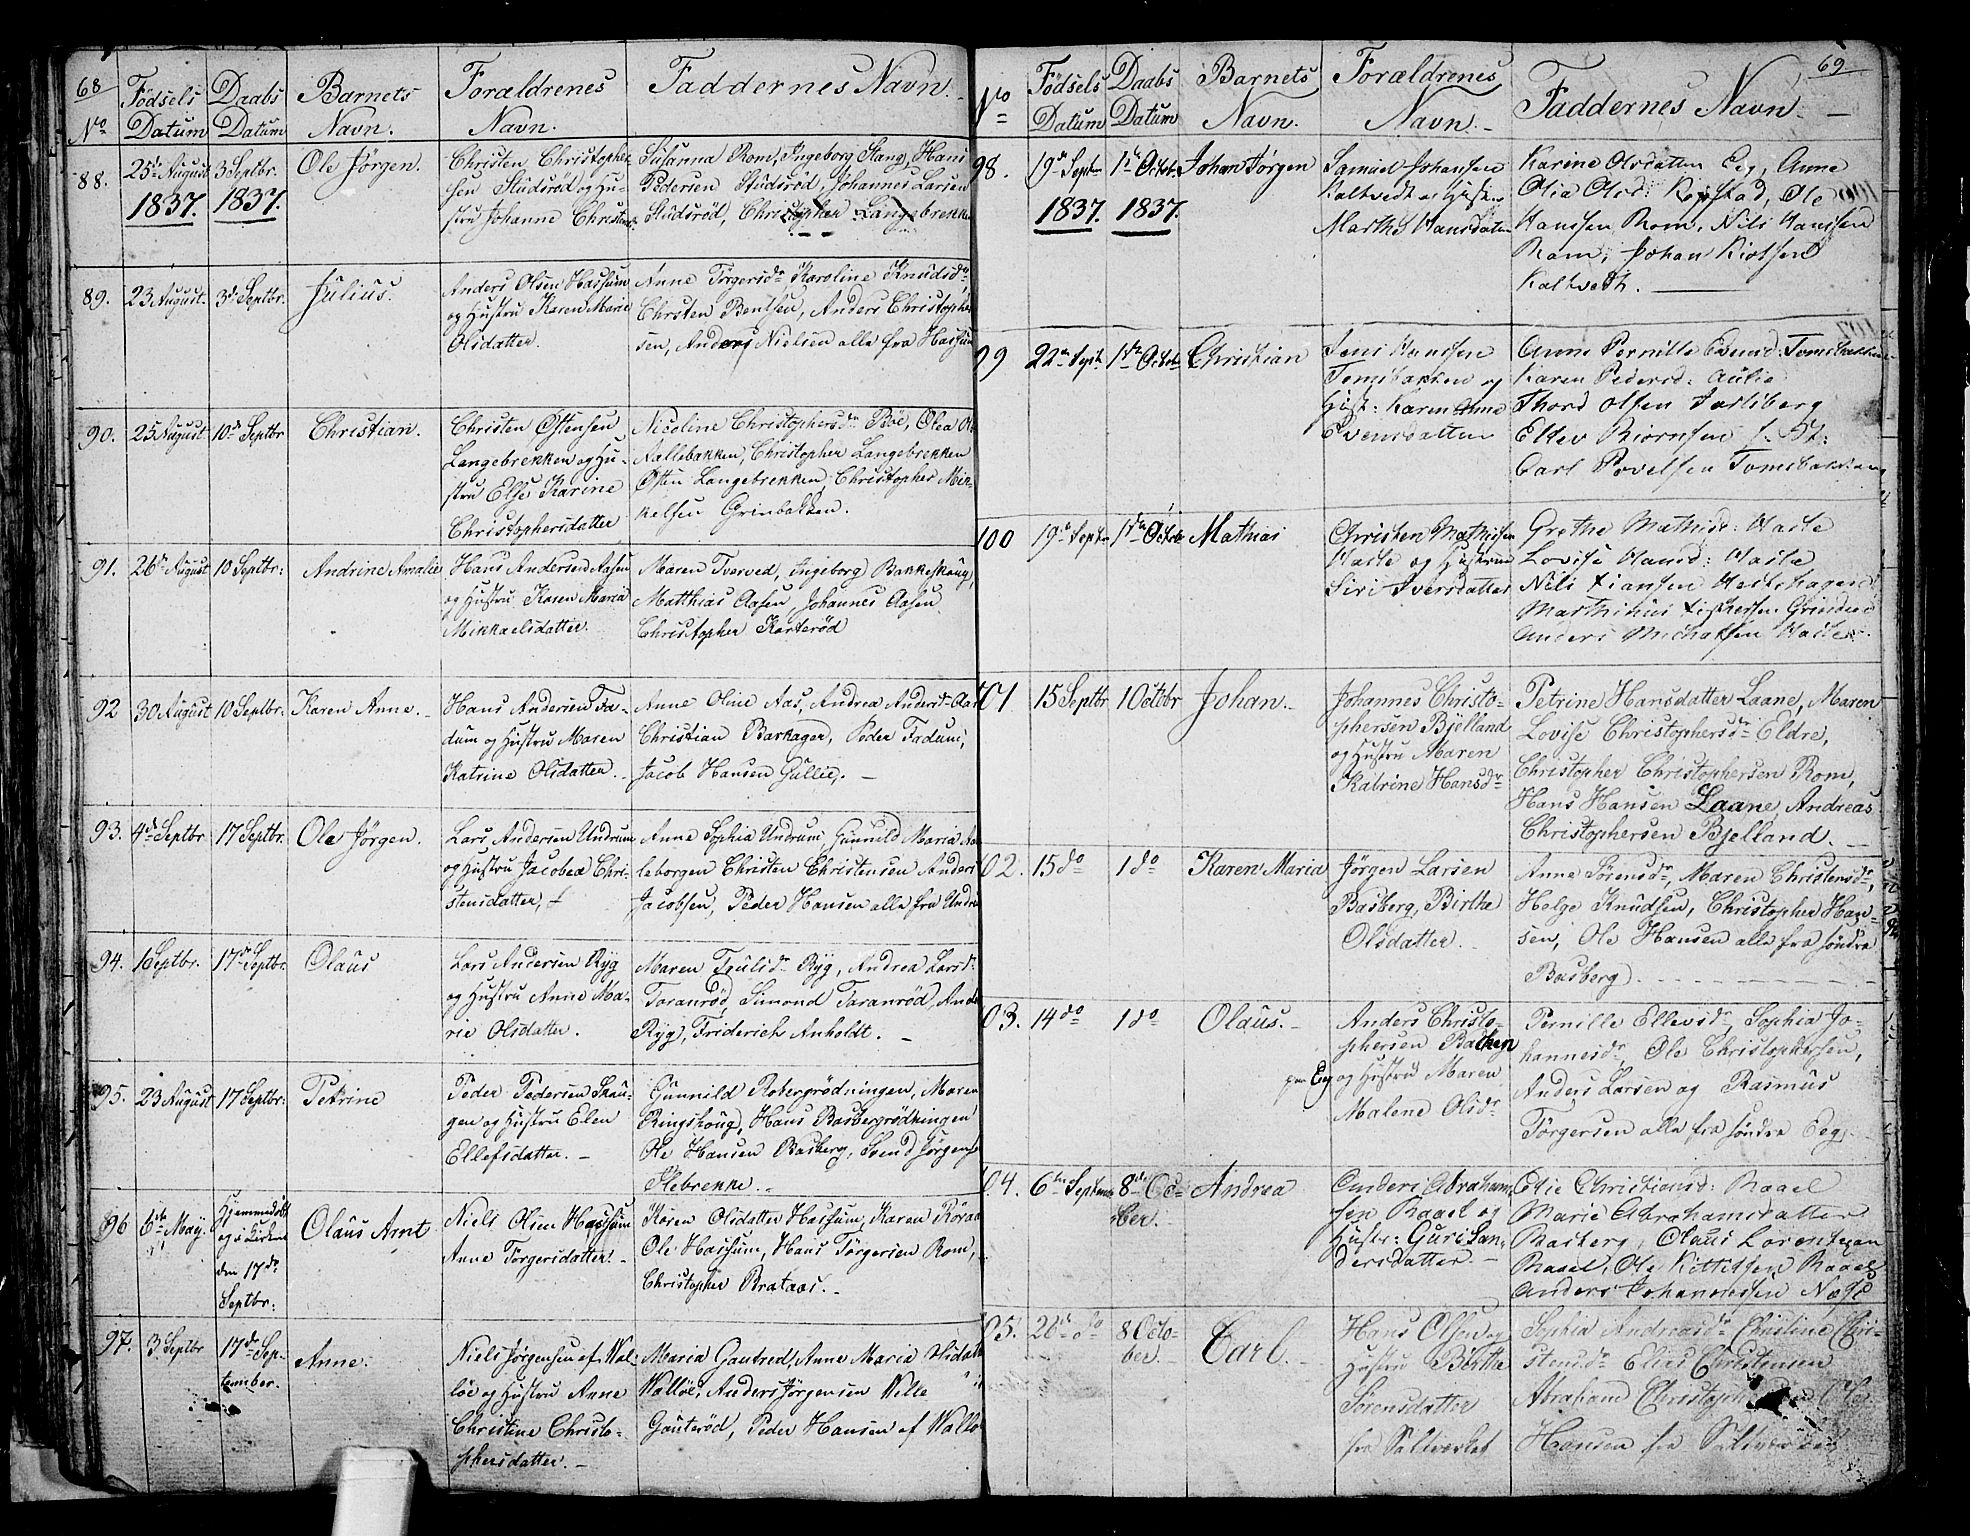 68
No
Födsels Datum
Daabs Datum
Barnets Navn.
Forældrenes Navn.
Faddernes Navn.
88.
25de August
1837.
3 Septbr.
1837.
Ole Jörgen.
Christen Christopher-
sen Studsröd og Hu-
stru Johanne Christens
Susanna Rom, Ingeborg Stang, Hans
Pedersen Studsröd, Johannes Larsen
Studsröd, Christopher Langebrekke
89.
23 August.
3de Septbr.
Julius.
Anders Olsen Hassum
og Hustru Karen Marie
Olsdatter.
Anne Törgersdr Karoline Knudsdr
Chrsten Bentsen, Anders Christopher
sen, Anders Nielsen alle fra Hassum
90.
25 August
10de Septbr
Christian.
Christen Östensen
Langebrekken og Hu-
stru Else Karine
Christophersdatter
Nicoline Christophersdr Böe, Olea
Nallebakken, Christopher Langebrekken
Östen Langebrekken, Christopher Mik-
kelsen Grinbakken.
91.
26de August
10 Septbr:
Andrine Amalie
Hans Andersen Aasen
og Hustru Karen Maria
Mikkaelsdatter.
Maren Tverved, Ingeborg Bakkeskoug,
Matthias Aasen, Johannes Aasen
Christopher Korteröd
92
30 August
10 Septbr.
Karen Anne.
Hans Andersen Fa-
dum og Hustru Maren
Katrine Olsdatter.
Anne Oline Aas, Andrea Andersdr Aas
Christian Barkager, Peder Fadum,
Jacob Hansen Gullie.
93.
4de Septbr
17 Septbr.
Ole Jörgen.
Lars Andersen Undrum
og Hustru Jacobea Chri-
stensdatter,
Anne Sophia Undrum, Gunnild Maria Aa
leborgen Christen Christensen Anders
Jacobsen, Peder Hansen alle fra Undru
94.
1 Septbr.
17de Septbr.
Olaus
Lars Andersen Ryg
og Hustru Anne Ma-
rie Olsdatter.
Maren Trulsdr Ryg, Andrea Larsdr
Taranröd, Simond Taranröd, Ande
Ryg, Friderich Anholdt.
95.
23 August
17 Septbr:
Petrine
Peder Pedersen Skau-
gen og Hustru Elen
Ellefsdatter.
Gunnild Robergrödningen, Maren
Ringskoug, Hans Basbergrödningen
Ole Hansen Basberg, Svend Jörgens
Plebrenke.
96
6te May.
Hjemmedöbt
og i Kirken
den 17de
Septbr:
Olaus Arnt
Niels Olsen Hassum
Anne Törgersdatter.
Karen Olsdatter Hassum, Karen Röraa
Ole Hassum, Hans Törgersen Rom,
Christopher Brataas.
97.
3 Septbr
17de Sep-
tember.
Anne.
Niels Jörgensen af Wal-
löe og Hustru Anne
Christine Christo-
phersdatter.
Maria Gautred, Anne Maria
Walløe, Anders Jörgensen Wille
Gauteröd, Peder Hansen af Wallö
69
No
Födsels Datum
Daabs Datum
Barnets Navn.
Forældrenes Navn.
Faddernes Navn.
98.
19de Septr
1837.
1de Octob.
1837.
Johan Jørgen
Samuel Johansen
Kaltvedt og Hust.
Marthe Hansdatter
Karine Olsdatter Eeg, Anne
Olia Olsd: Ragstad, Ole
Hanssen Rom, Nils Hanssen
Ram, Johan Kiøtsen
Kaltvedt.
99
22de Sept.
1de Octob
Christian
Jens Hanssen
Tomsbakken og
Hust: Karen Anne
Evensdatter
Anne Pernille Evensd: Tomsbakken
Karen Pedersd: Aulie
Thord Olsen Jarlsberg
Ellev Biørnsen
Carl Povelsen Tomsbakken
100
19de Septr
1de Octob
Mathias
Christen Mathisen
Hasle og Hustrue
Siri Iversdatter
Grethe Mathisd: Hasle
Lovise Hansd: Hasle
Nils Xiansen
Marthinus
Anders Michelsen Hasle.
101
15 Septbr
1 Octobr
Johan.
Johannes Christo-
phersen Bjelland
og Hustru Maren
Katrine Hansdr
Petrine Hansdatter Laane, Maren
Lovise Christophersdr Eldre,
Christopher Christophersen Rom,
Hans Hansen Laane Andreas
Christophersen Bjelland.
02.
15 do
1 do
Karen Maria
Jörgen Larsen
Basberg, Birthe
Olsdatter.
Anne Sörensdr, Maren Christensdr,
Helge Knudsen, Christopher Han-
sen, Ole Hansen alle fra söndre
Basberg.
03.
14 do
1 do
Olaus.
Anders Christo-
phersen Bakken
paa Eeg og Hustru Maren
Malene Olsdr
Pernille Ellevsdr Sophia Jo-
hannesdr, Ole Christophersen,
Anders Larsen og Rasmus
Törgersen alle fra söndre Eeg.
04.
6te Septemb
8de Oc-
ber.
Andrea
Anders Abraham-
sen Raael og
Hustr: Guri San-
dersdatter.
Elie Christiansd: Raael
Marie Abrahamsdatter
Basberg, Olaus Lorentzen
Raael, Ole Kittilsen Raael
Anders Johannessen Næse
05.
26de do
8 Octo-
ber.
Carl.
Hans Olsen og
Hustru Birthe
Sörensdatter
fra Saltverket
Sophia Andreasdr Christine Chri-
stensdr Elias Christensen
Abraham
Hansen fra Saltverket